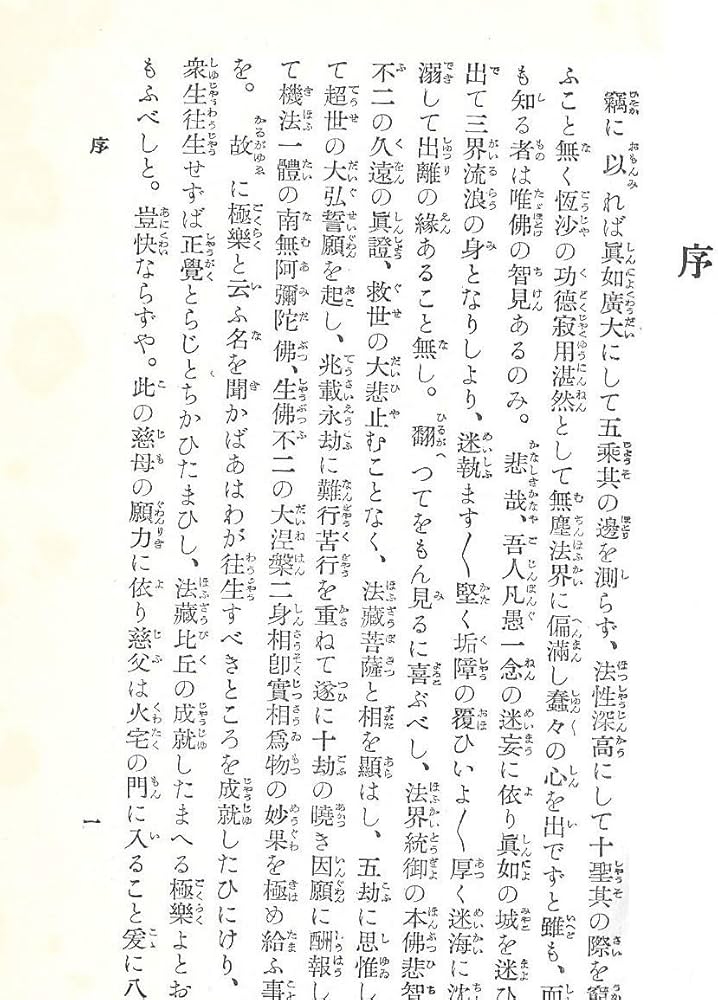 序
竊に以れば眞如廣大にして五乘其の邊を測らず、法性深高にして十聖其の際を窺
ふこと無く恆沙の功德寂用湛然として無塵法界に偏滿し蠢々の心を出でずと雖も、而
も知る者は唯佛の智見あるのみ。悲哉、吾人凡愚一念の迷妄に依り眞如の城を迷ひ
出て三界流浪の身となりしより、迷執ます〱堅く垢障の覆ひいよ〱厚く迷海に沈
溺して出離の緣あること無し。翻つてをもん見るに喜ぶべし、法界統御の本佛悲智
不二の久遠の眞證、救世の大悲止むことなく、法藏菩薩と相を顯はし、五劫に思惟し
て超世の大弘誓願を起し、兆載永劫に難行苦行を重ねて遂に十劫の曉き因願に酬報し
て機法一體の南無阿彌陀佛、生佛不二の大涅槃二身相卽實相爲物の妙果を極め給ふ事
を。故に極樂と云ふ名を聞かばあはわが往生すべきところを成就したひにけり、
衆生往生せずば正覺とらじとちかひたまひし、法藏比丘の成就したまへる極樂よとお
もふべしと。豈快ならずや。此の慈母の願力に依り慈父は火宅の門に入ること爰に八
序
一